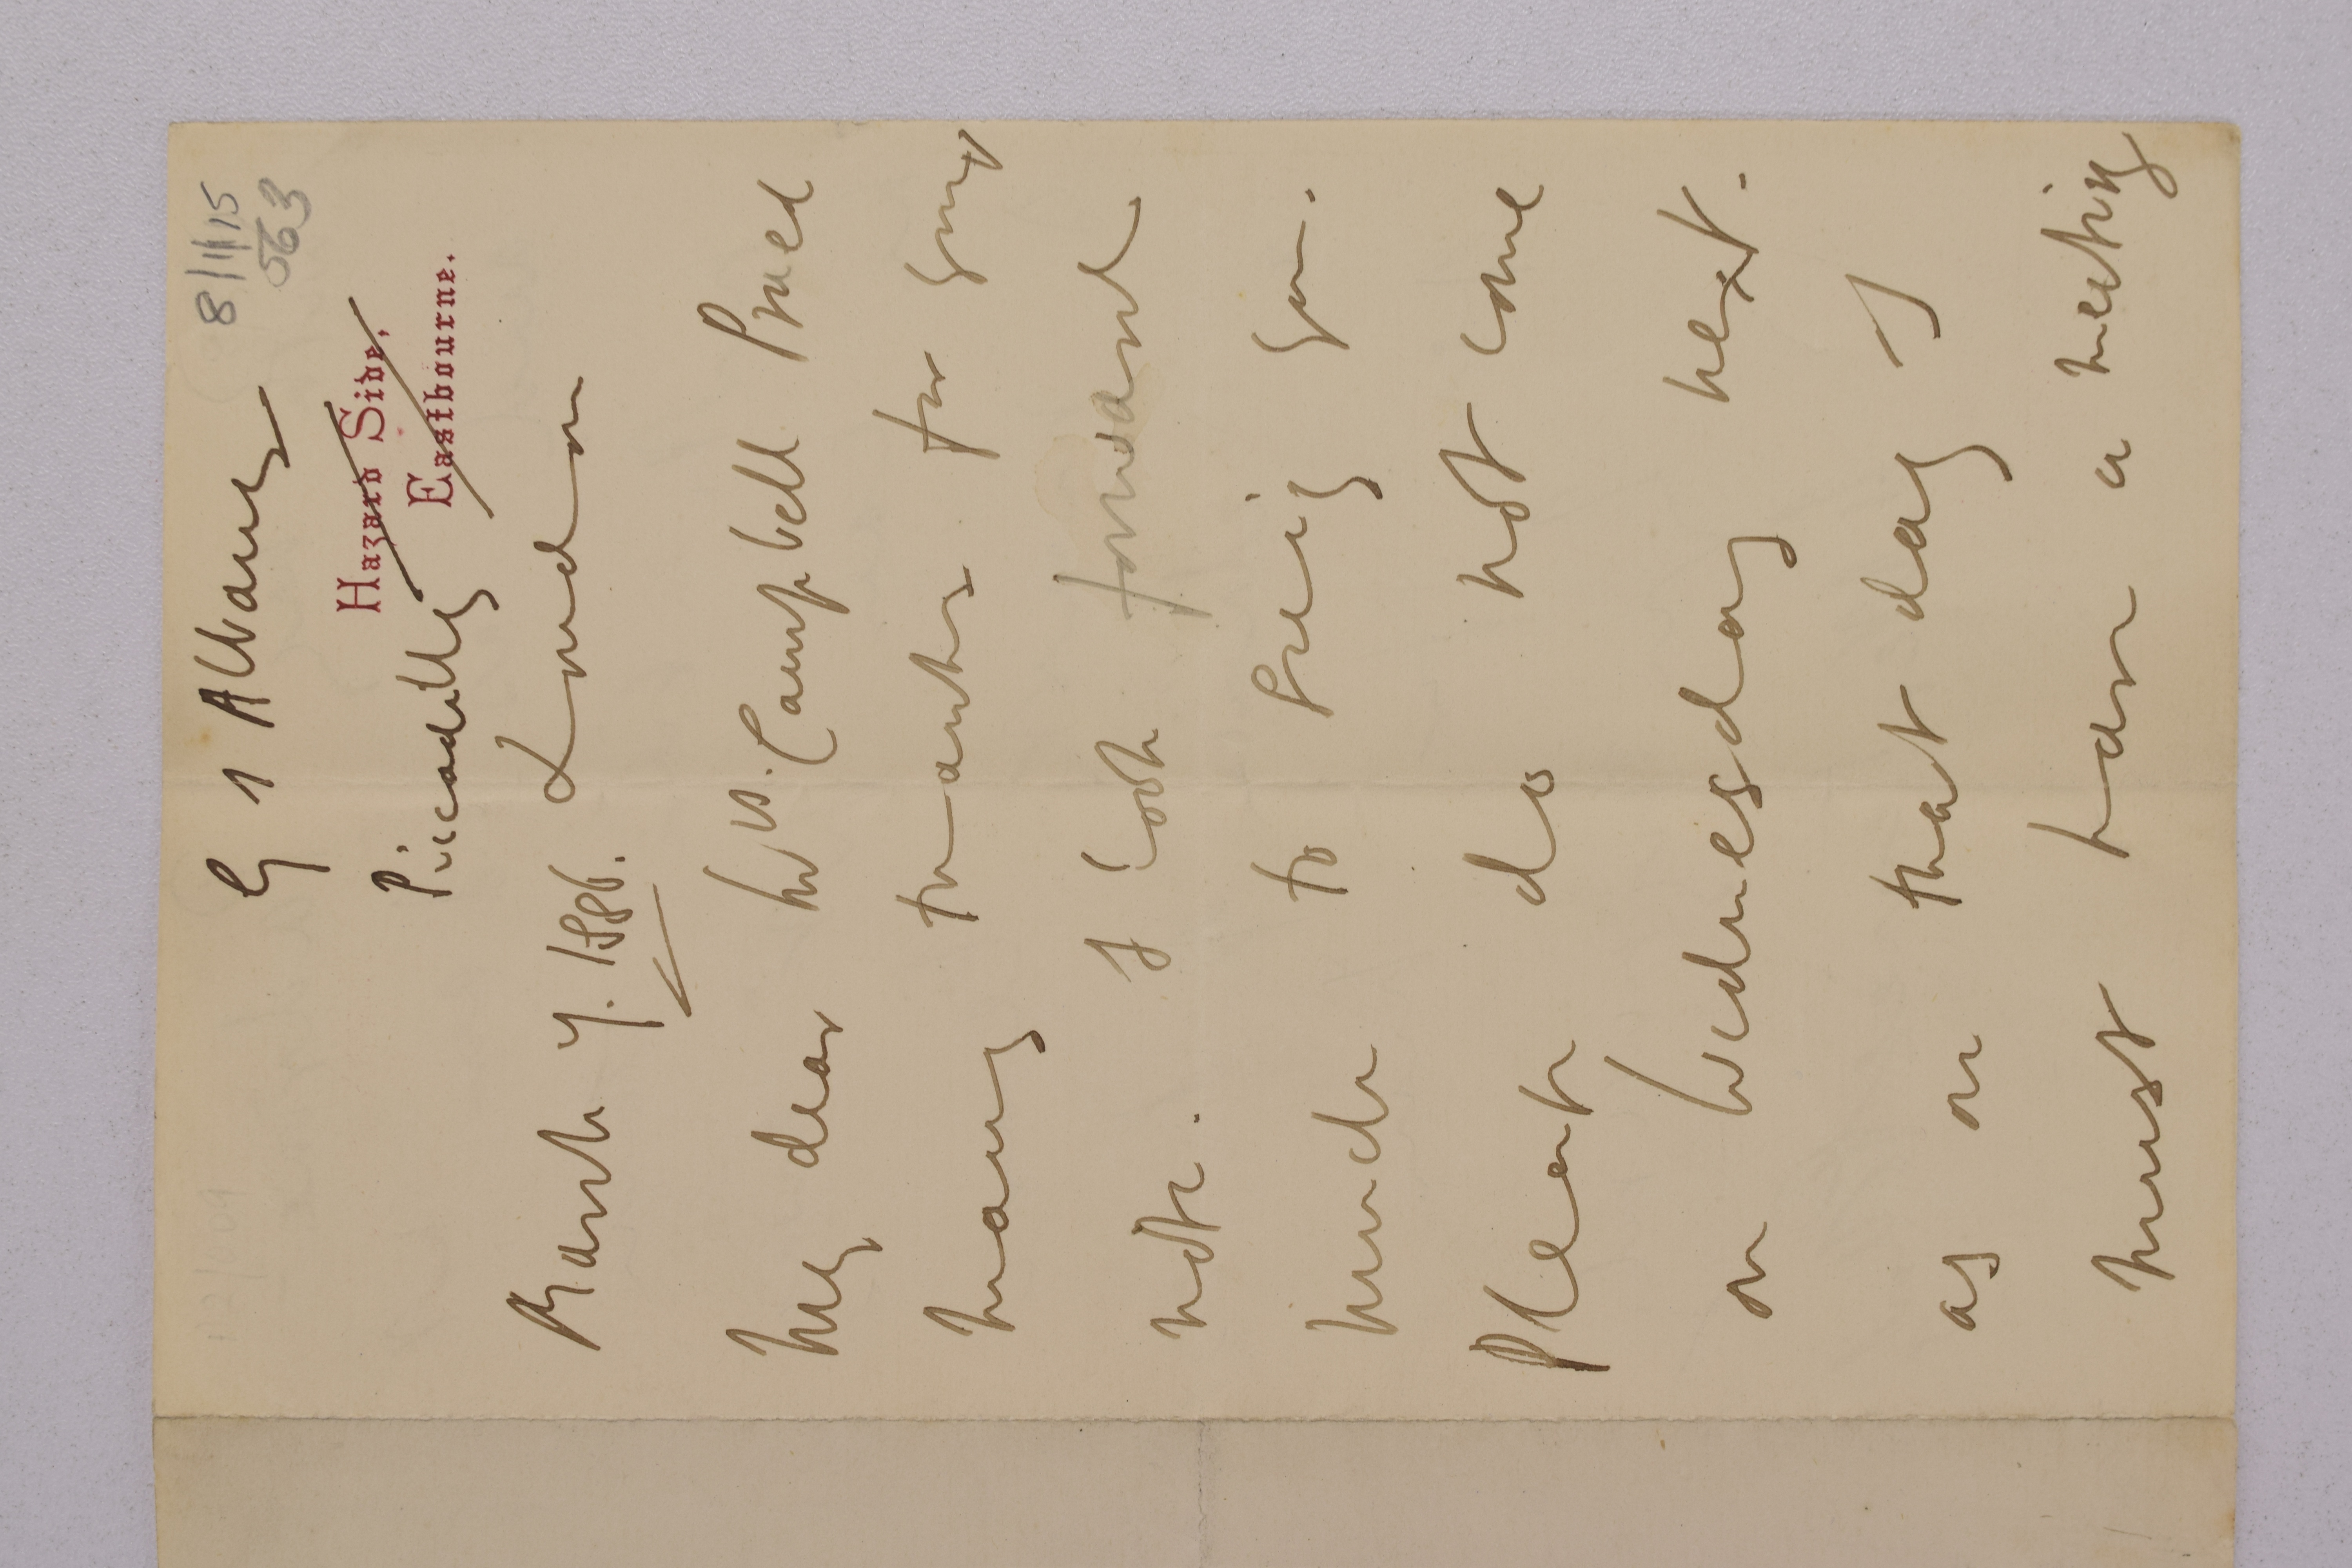 8/1/15
563
G 1 Albany
Hazard Side,
Eastbourne.
Piccadilly
London
March 4. 1886.
My dear Mrs. Campbell Praed
many thanks for your
note. I look forward
much to seeing you.
Please do not come
on Wednesday next.
as on that day I
must have a meeting